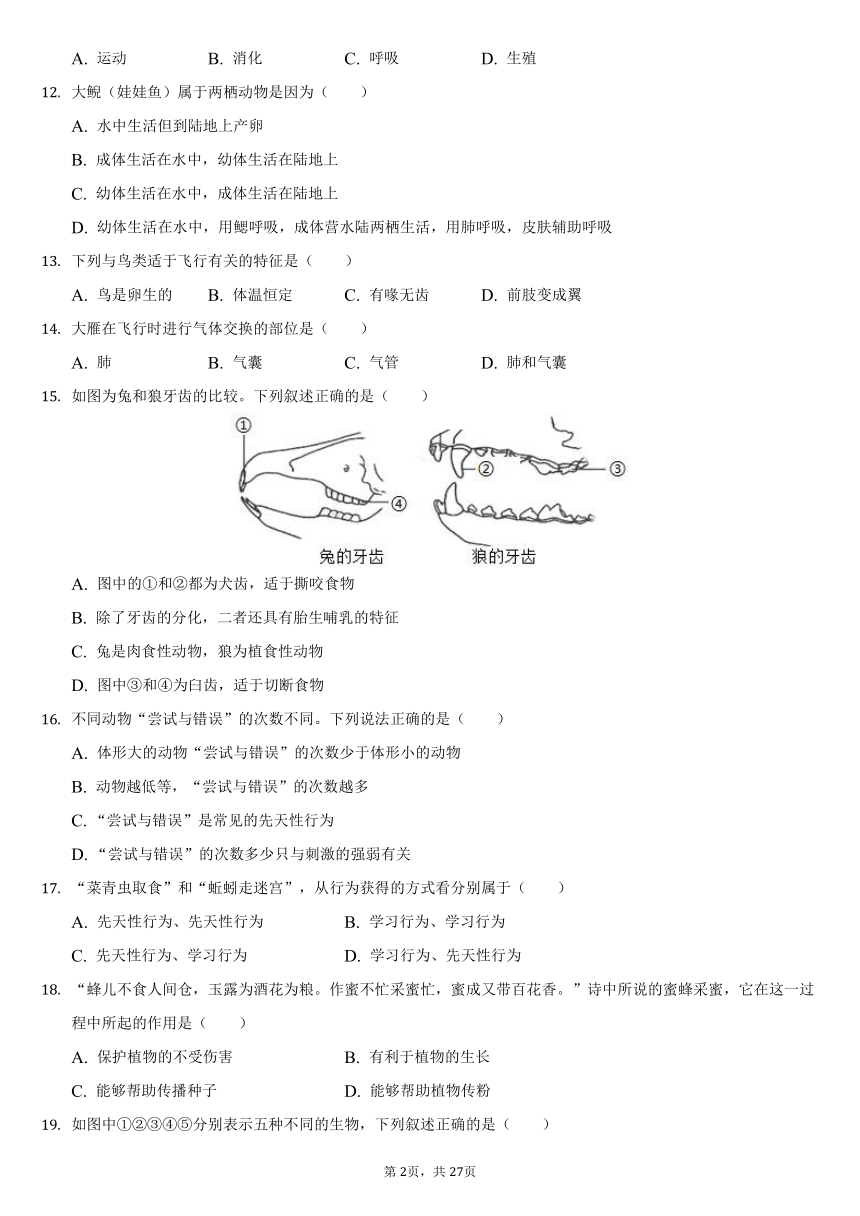 A. 运动 B. 消化 C. 呼吸 D. 生殖
12. 大鲵（娃娃鱼）属于两栖动物是因为（　　）
A. 水中生活但到陆地上产卵
B. 成体生活在水中，幼体生活在陆地上
C. 幼体生活在水中，成体生活在陆地上
D. 幼体生活在水中，用鳃呼吸，成体营水陆两栖生活，用肺呼吸，皮肤辅助呼吸
13. 下列与鸟类适于飞行有关的特征是（　　）
A. 鸟是卵生的 B. 体温恒定 C. 有喙无齿 D. 前肢变成翼
14. 大雁在飞行时进行气体交换的部位是（　　）
A. 肺 B. 气囊 C. 气管 D. 肺和气囊
15. 如图为兔和狼牙齿的比较。下列叙述正确的是（　　）
①
② ③
④
兔的牙齿 狼的牙齿
A. 图中的①和②都为犬齿，适于撕咬食物
B. 除了牙齿的分化，二者还具有胎生哺乳的特征
C. 兔是肉食性动物，狼为植食性动物
D. 图中③和④为臼齿，适于切断食物
16. 不同动物“尝试与错误”的次数不同。下列说法正确的是（　　）
A. 体形大的动物“尝试与错误”的次数少于体形小的动物
B. 动物越低等，“尝试与错误”的次数越多
C. “尝试与错误”是常见的先天性行为
D. “尝试与错误”的次数多少只与刺激的强弱有关
17. “菜青虫取食”和“蚯蚓走迷宫”，从行为获得的方式看分别属于（　　）
A. 先天性行为、先天性行为 B. 学习行为、学习行为
C. 先天性行为、学习行为 D. 学习行为、先天性行为
18. “蜂儿不食人间仓，玉露为酒花为粮。作蜜不忙采蜜忙，蜜成又带百花香。”诗中所说的蜜蜂采蜜，它在这一过
程中所起的作用是（　　）
A. 保护植物的不受伤害 B. 有利于植物的生长
C. 能够帮助传播种子 D. 能够帮助植物传粉
19. 如图中①②③④⑤分别表示五种不同的生物，下列叙述正确的是（　　）
第 2页，共 27页